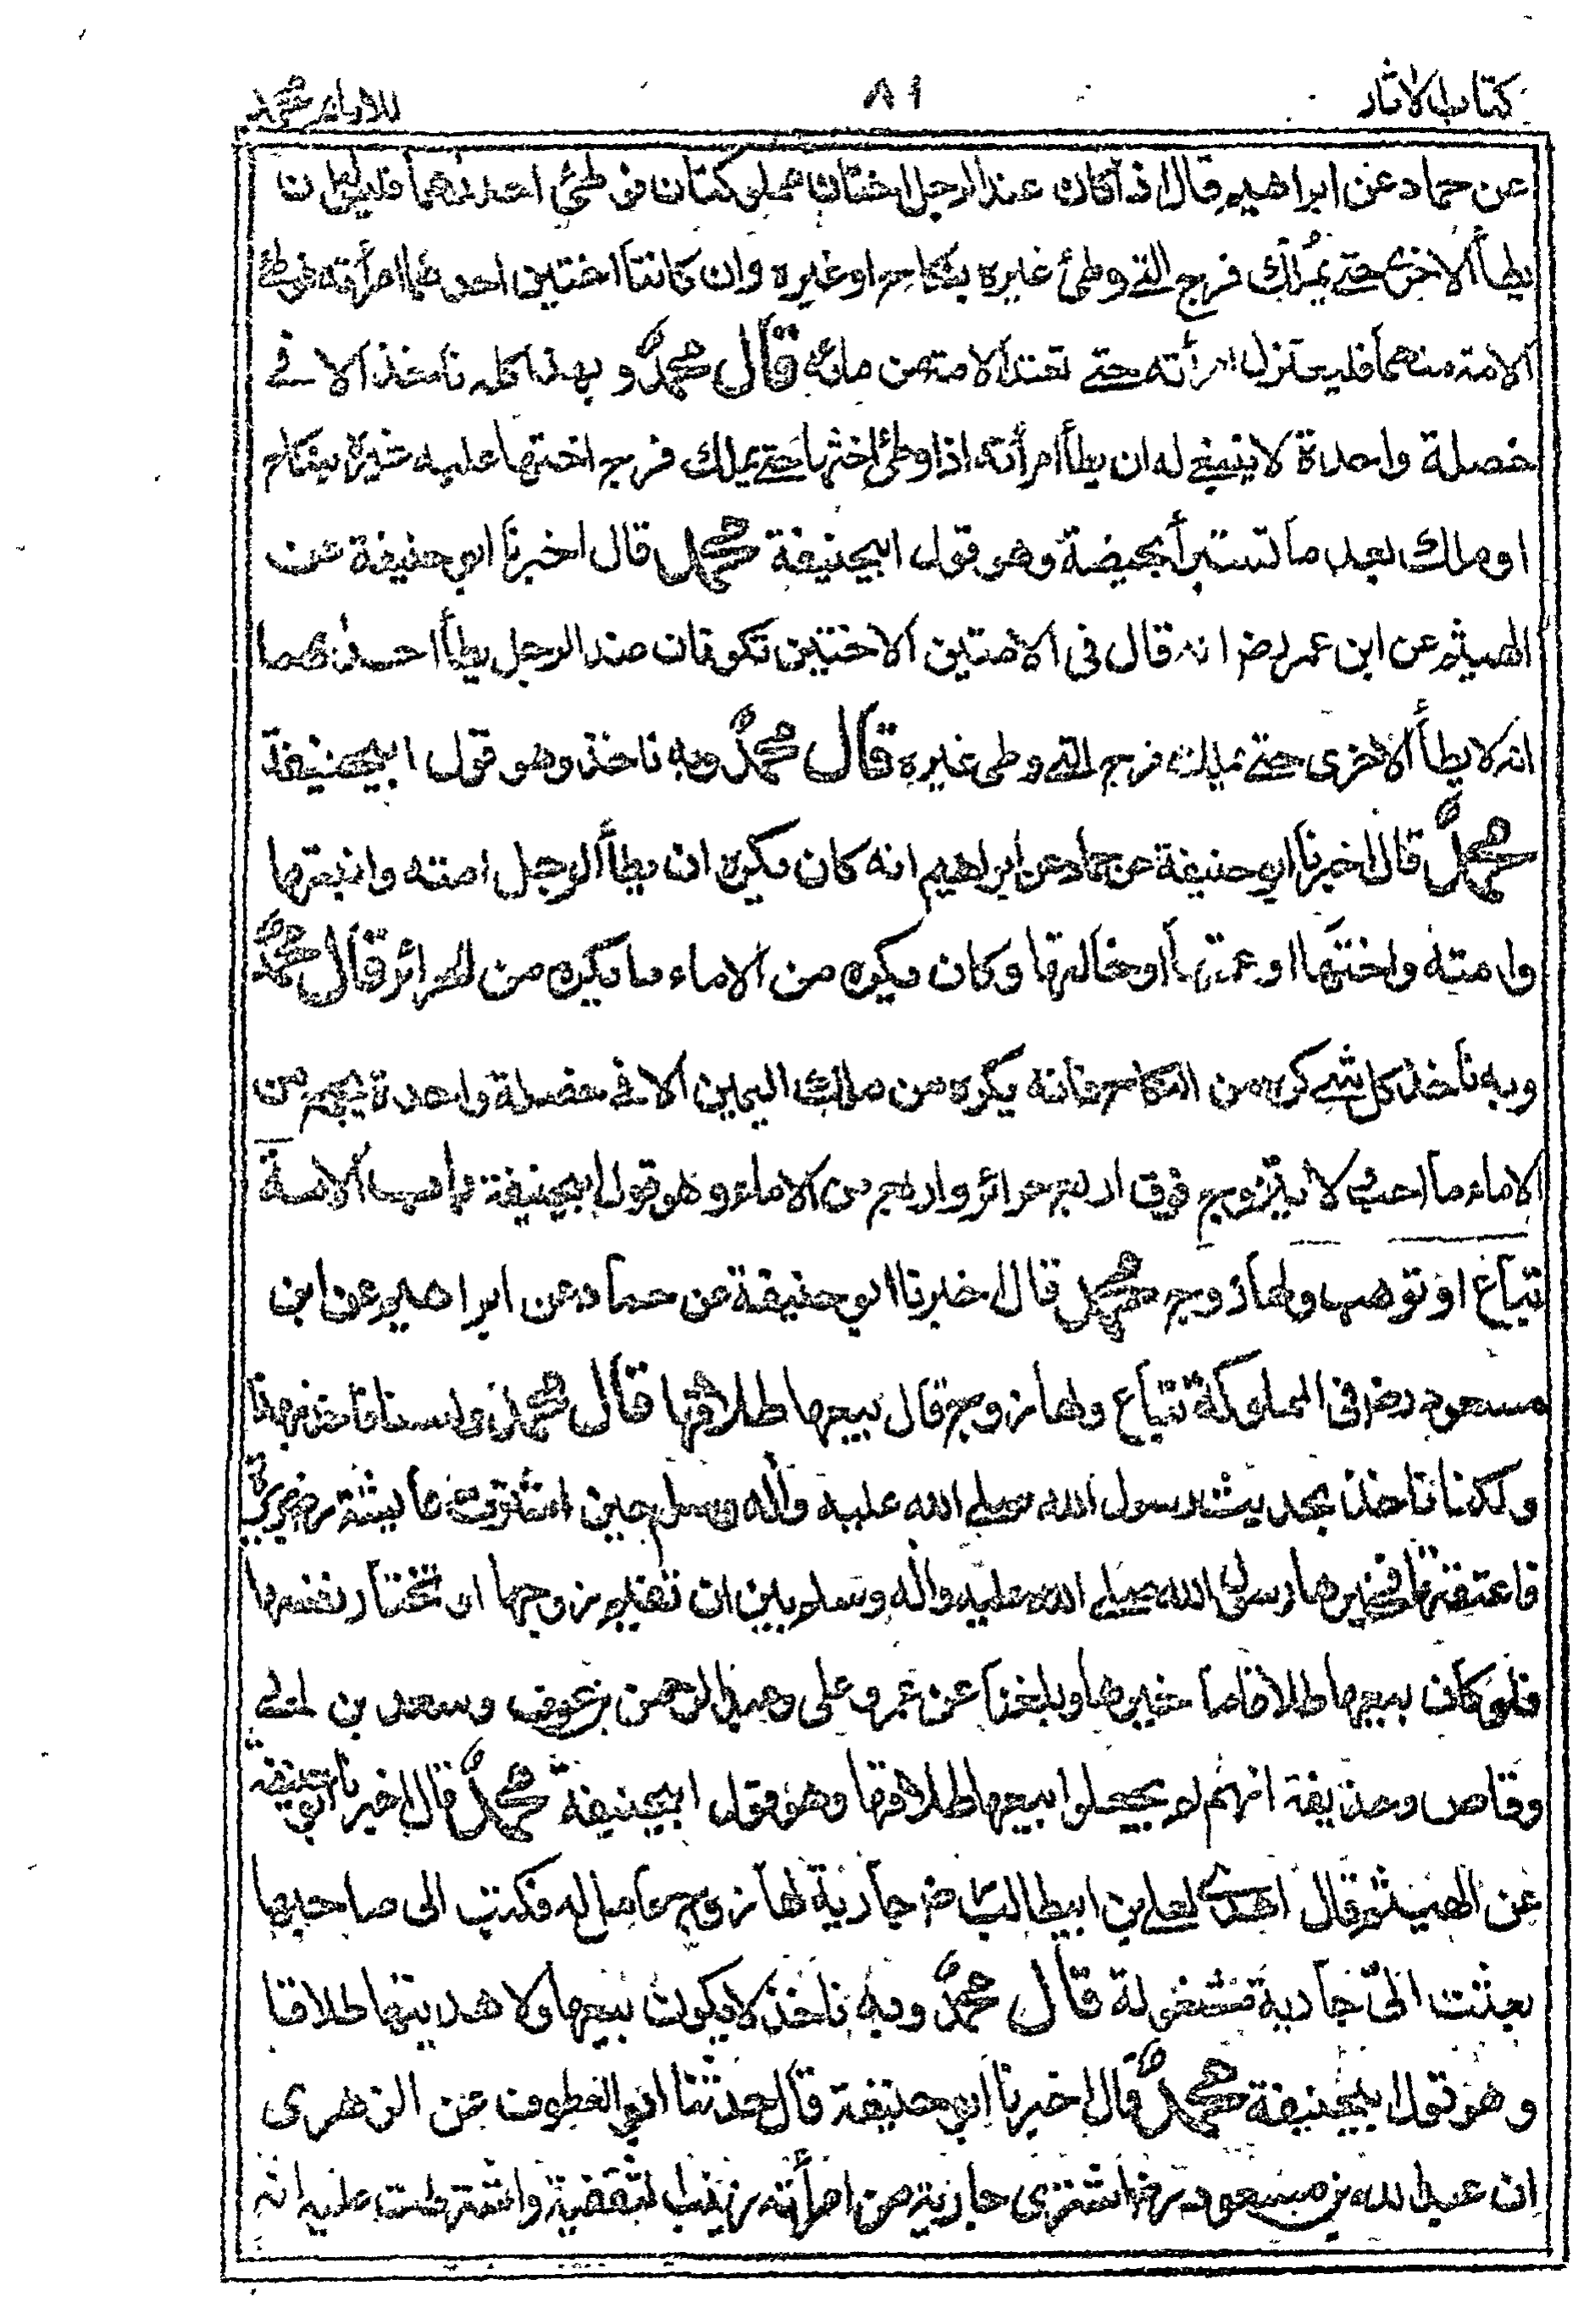 كتاب الاثار ٨١ للامام محمد
عن حماد عن ابراهيم قال اذا كان عند الرجل اختان مملوكتان فوطئ احدىهما فليس له ان
يطأ الاخرى حتى يملك فرج التى وطئ غيره بنكاح او غيره وان كانتا اختين احدىهما امرأته فوطئ
الامة منهما فليعتزل امرأته حتى تعتد الامة من مائه قال محمد وبهذا كله ناخذ الا فى
خصلة واحدة لا ينبغى له ان يطأ امرأته اذا وطئ اختها حتى يملك فرج اختها عليه غيره بنكاح
او ملك بعد ما تستبرأ بحيضة وهو قول ابيحنيفة محمد قال اخبرنا ابو حنيفة عن
الهيثم عن ابن عمر رض انه قال فى الامتين الاختين تكونان عند الرجل يطأ احدىهما
انه لا يطأ الاخرى حتى يملك فرج التى وطى غيره قال محمد وبه ناخذ وهو قول ابيحنيفة
محمد قال اخبرنا ابو حنيفة عن حماد عن ابراهيم انه كان يكره ان يطأ الرجل امته وابنتها
وامته واختها او عمتها او خالتها وكان يكره من الاماء ما يكره من الحرائر قال محمد
وبه ناخذ كل شئ كره من النكاح فانه يكره من ملك اليمين الا فى خصلة واحدة يجمع من
الاماء ما احب ولا يتزوج فوق اربع حرائر واربع من الاماء وهو قول ابيحنيفة باب الامة
تباع او توهب ولها زوج محمد قال اخبرنا ابو حنيفة عن حماد عن ابراهيم عن ابن
مسعود رض فى المملوكة تباع ولها زوج قال بيعها طلاقها قال محمد ولسنا ناخذ بهذا
ولكنا ناخذ بحديث رسول الله صلى الله عليه واله وسلم حين اشترت عايشة رض بريرة
فاعتقتها فخيرها رسول الله صلى الله عليه واله وسلم بين ان تقيم مع زوجها او تختار نفسها
فلو كان بيعها طلاقا ما خيرها وبلغنا عن عمر وعلى وعبد الرحمن بن عوف وسعد بن ابى
وقاص وحذيفة انهم لم يجعلوا بيعها طلاقها وهو قول ابيحنيفة محمد قال اخبرنا ابو حنيفة
عن الهيثم قال اهدى لعلى بن ابيطالب رض جارية لها زوج عامل له فكتب الى صاحبها
بعثت الىّ جارية مشغولة قال محمد وبه ناخذ لا يكون بيعها ولا هديتها طلاقا
وهو قول ابيحنيفة محمد قال اخبرنا ابو حنيفة قال حدثنا ابو العطوف عن الزهرى
ان عبد الله بن مسعود رض اشترى جارية من امرأته زينب الثقفية واشترطت عليه انه